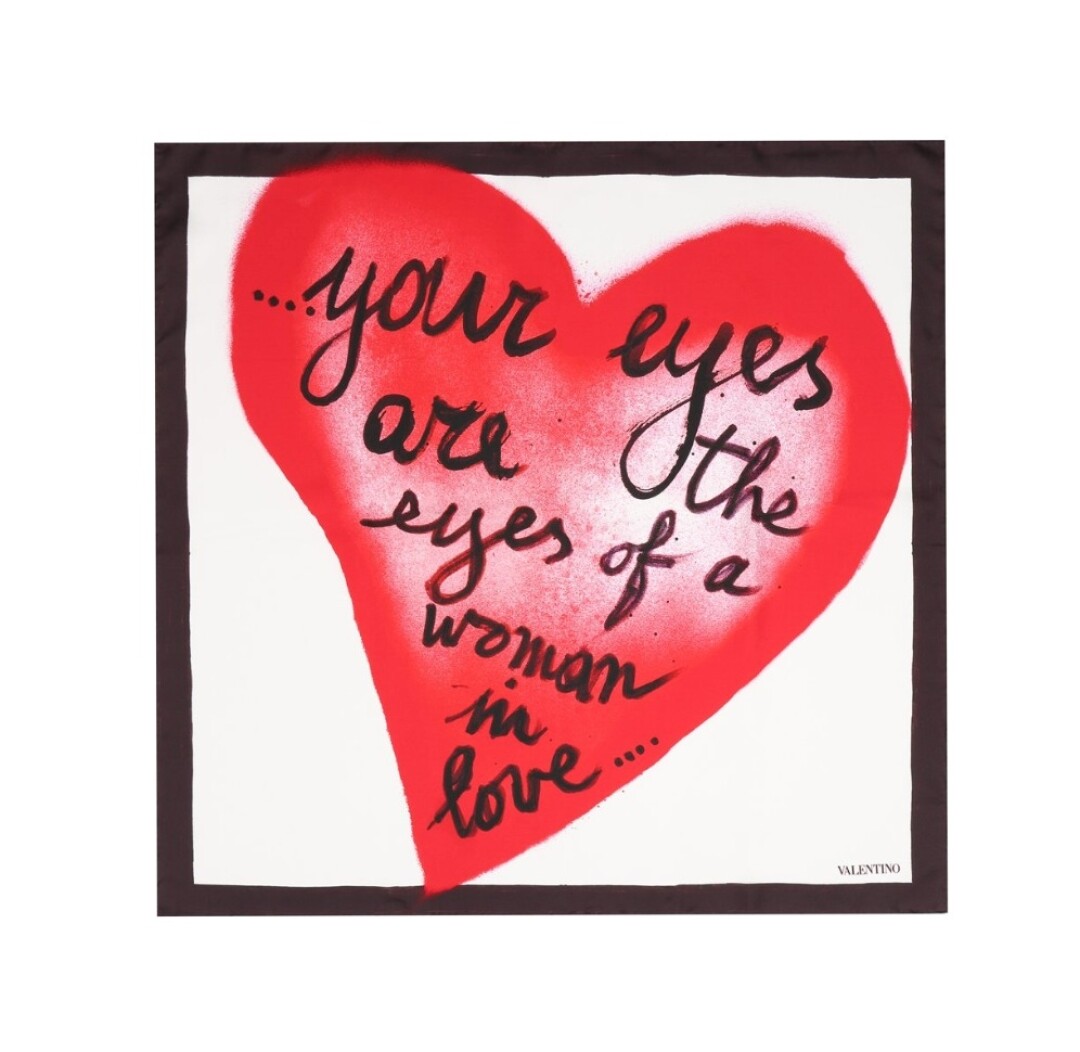 ....your eyes
are the
eyes of a
woman
in
love....
VALENTINO